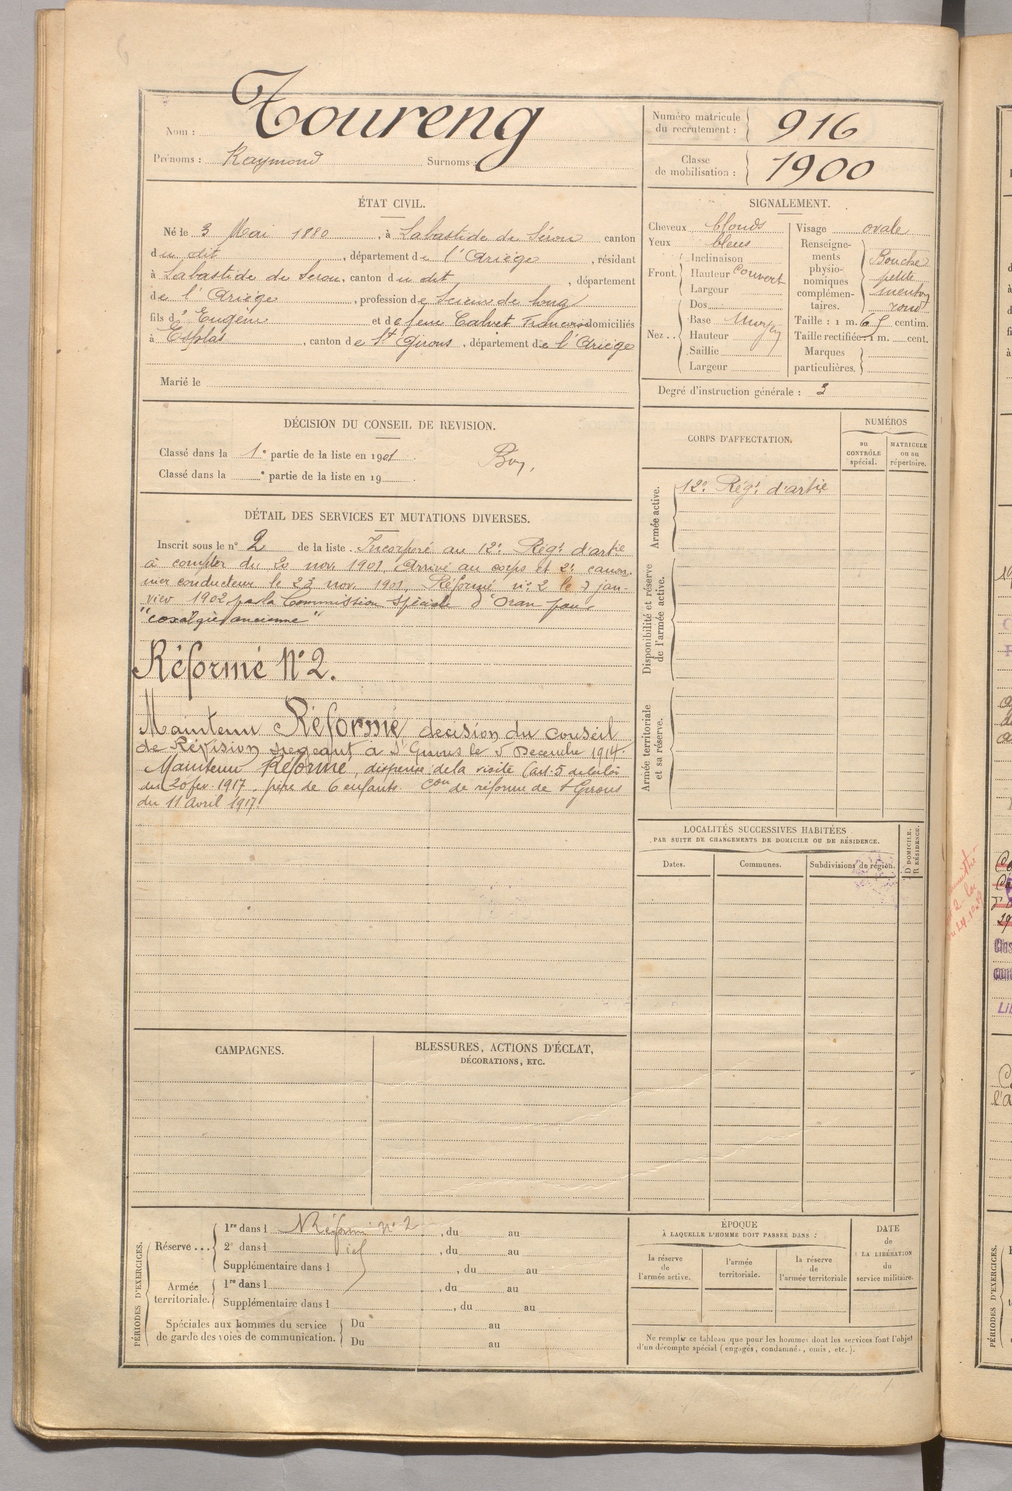 Nom : Toureng
Prénoms : Raymond Surnoms :
Numéro matricule du recrutement : 916
Classe de mobilisation : 1900
ÉTAT CIVIL.
Né le 3 Mai 1880, à Labastide de Sérou canton
du dit, département de l'Ariège, résidant
à Labastide de Serou, canton du dit, département
de l'Ariège, profession de Scieur de long
fils d'Eugène et de feue Calvet domiciliés
à Esplas, canton de St Girons, département de l'Ariège
Marié le
SIGNALEMENT.
Cheveux blonds
Yeux bleus
Front. Inclinaison
Hauteur couvert
Largeur
Nez.. Dos
Base
Hauteur
Saillie
Largeur
Visage ovale
Renseignements physionomiques complémentaires. Bouche petite menton rond
Taille : 1 m. 65 centim.
Taille rectifiée : 1 m. cent.
Marques particulières.
Degré d'instruction générale : 3
DÉCISION DU CONSEIL DE REVISION.
Classé dans la 1e partie de la liste en 1901. Bon,
Classé dans la e partie de la liste en 19
DÉTAIL DES SERVICES ET MUTATIONS DIVERSES.
Inscrit sous le n° 2 de la liste. Incorporé au 12e Régt d'artie
à compter du 20 nov. 1901. Arrivé au corps et 2e canon-
nier conducteur le 23 nov. 1901. Réformé n° 2 le 7 jan-
vier 1902 par la Commission spéciale d'Oran pour
"coxalgie ancienne"
Réformé N°2.
Maintenu Réformé décision du conseil
de Révision siégeant à St Girons le 5 Décembre 1914.
Maintenu Réformé, dispensé de la visite (art. 5 de la loi
du 20 fév. 1917. père de 6 enfants. Con de réforme de St Girons
du 11 avril 1917.
CORPS D'AFFECTATION.
NUMÉROS
au CONTRÔLE spécial.
MATRICULE ou au répertoire.
Armée active.
12e Régt d'artie
Disponibilité et réserve de l'armée active.
Armée territoriale et sa réserve.
LOCALITÉS SUCCESSIVES HABITÉES
PAR SUITE DE CHANGEMENTS DE DOMICILE OU DE RÉSIDENCE.
Dates.
Communes.
Subdivisions de région.
D DOMICILE.
R RÉSIDENCE.
CAMPAGNES.
BLESSURES, ACTIONS D'ÉCLAT,
DÉCORATIONS, ETC.
PÉRIODES D'EXERCICES.
Réserve ... 1re dans l Réformé n° 2, du au
2e dans l, du au
Supplémentaire dans l, du au
Armée territoriale. 1re dans l, du au
Supplémentaire dans l, du au
Spéciales aux hommes du service de garde des voies de communication. Du au
Du au
ÉPOQUE
À LAQUELLE L'HOMME DOIT PASSER DANS :
la réserve de l'armée active.
l'armée territoriale.
la réserve de l'armée territoriale
DATE de LA LIBÉRATION du service militaire.
Ne remplir ce tableau que pour les hommes dont les services font l'objet
d'un décompte spécial (engagés, condamnés, omis, etc.).